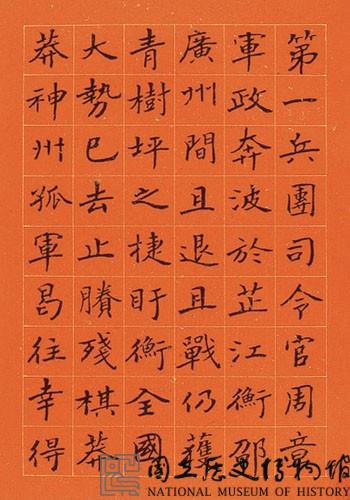 第一兵團司令官周章
軍政奔波於芷江衡邵
廣州間且退且戰仍獲
青樹坪之捷盱衡全國
大勢已去止賸殘棋莽
莽神州孤軍曷往幸得
國立歷史博物館
NATIONAL MUSEUM OF HISTORY